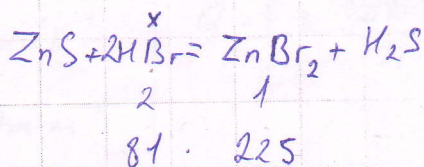 x
ZnS+2HBr=ZnBr₂+H₂S
2 1
81 . 225